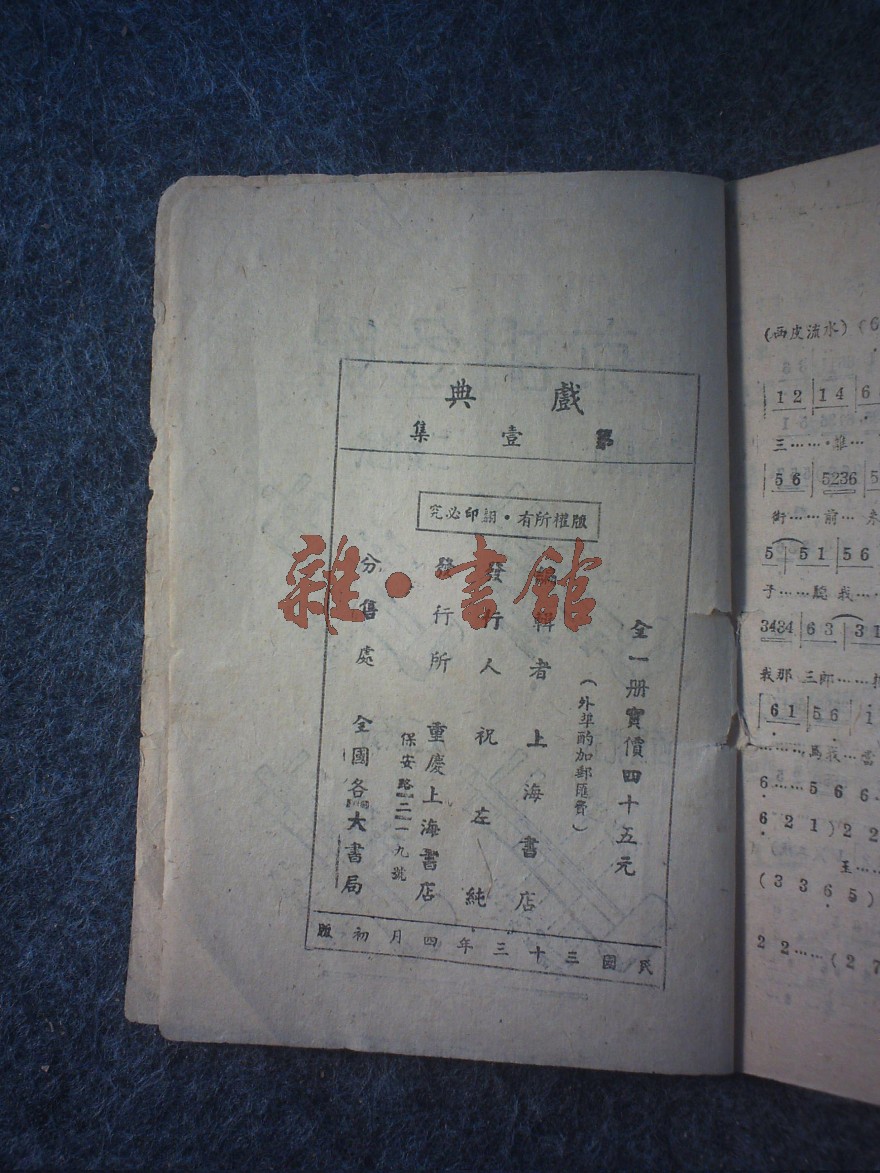 戲典
第壹集
版權所有·翻印必究
全一册實價四十五元
(外埠酌加郵匯費)
編輯者 上海書店
發行人 祝左純
發行所 重慶上海書店
保安路二一九號
分售處 全國各大書局
民國三十三年四月初版
雜·書館
(西皮流水)(6
1 2 1 4 6
三……誰…
5 6 5236 5
街……前…來
5 5 1 5 6
子……騙我…
3434 6 3 3 1
我那三郎……
6 1 5 6 1
………馬我…當
6……5 6 6
6 2 1) 2 2
至……
(3 3 6 5)
2 2……(2 7